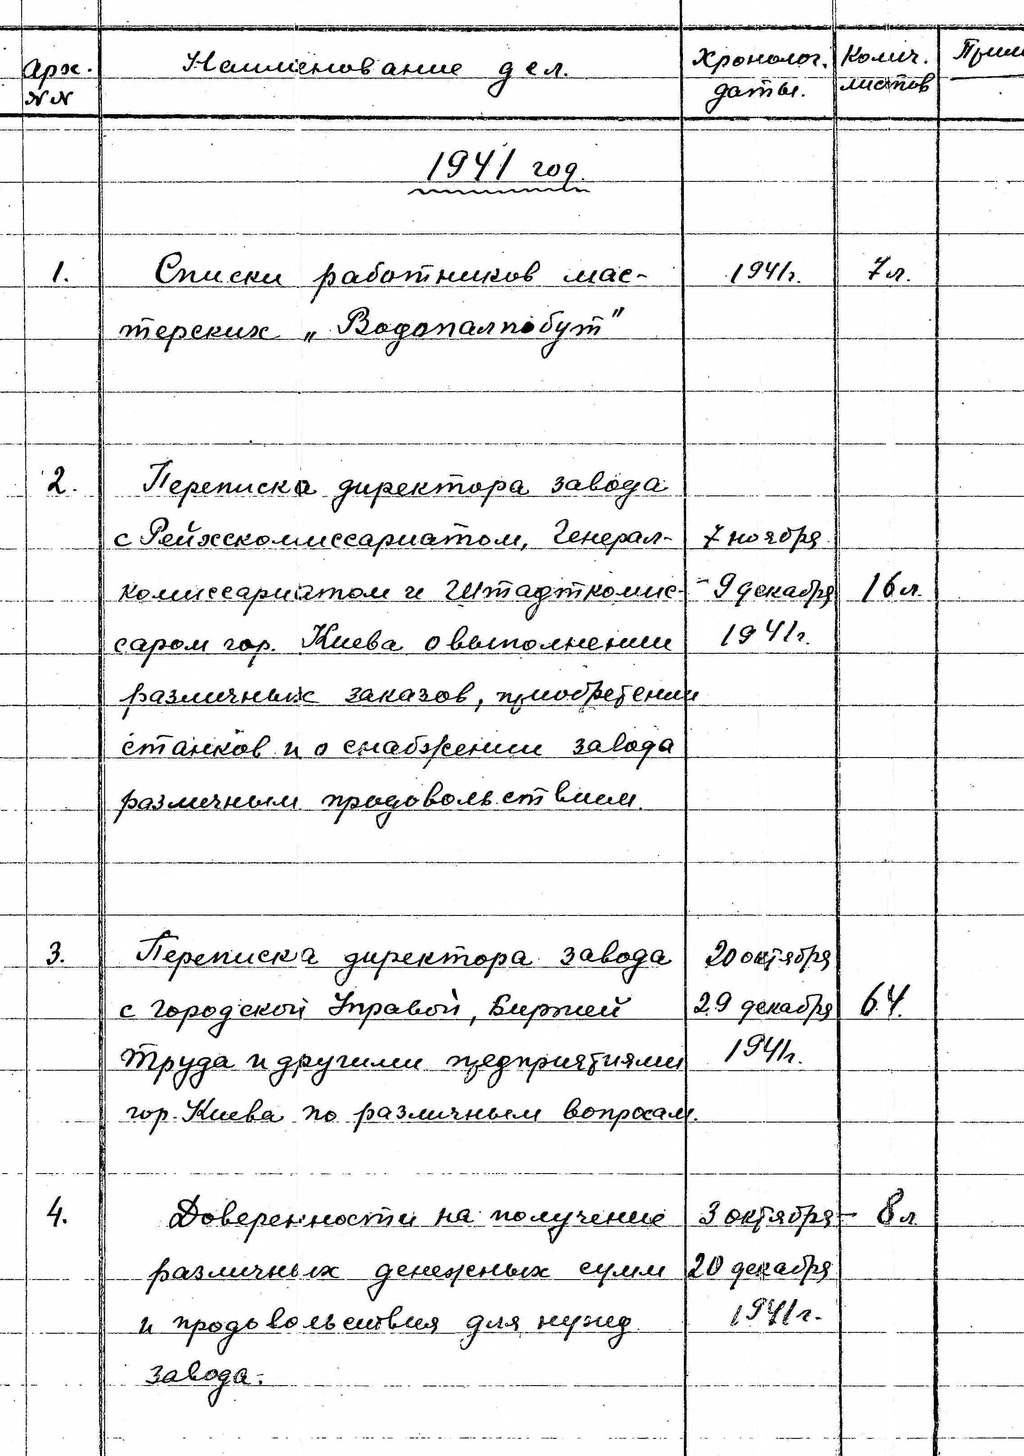 Арх. Наименование дел. Хронолог. Колич.
NN даты. листов
1941 год.
1. Списки работников мас- 1941г. 7л.
терских „Водопалпобут"
2. Переписка директора завода
с Рейхскомиссариатом, Генерал- 7 ноября
комиссариатом и Штадткомис- - 9 декабря 16 л.
саром гор. Киева о выполнении 1941г.
различных заказов, приобретении
станков и о снабжении завода
различным продовольствием.
3. Переписка директора завода 20 октября
с городской Управой, Биржей 29 декабря 64.
труда и другими предприятиями 1941г.
гор. Киева по различным вопросам.
4. Доверенности на получение 3 октября- 8л
различных денежных сумм 20 декабря
и продовольствия для нужд 1941г.
завода.